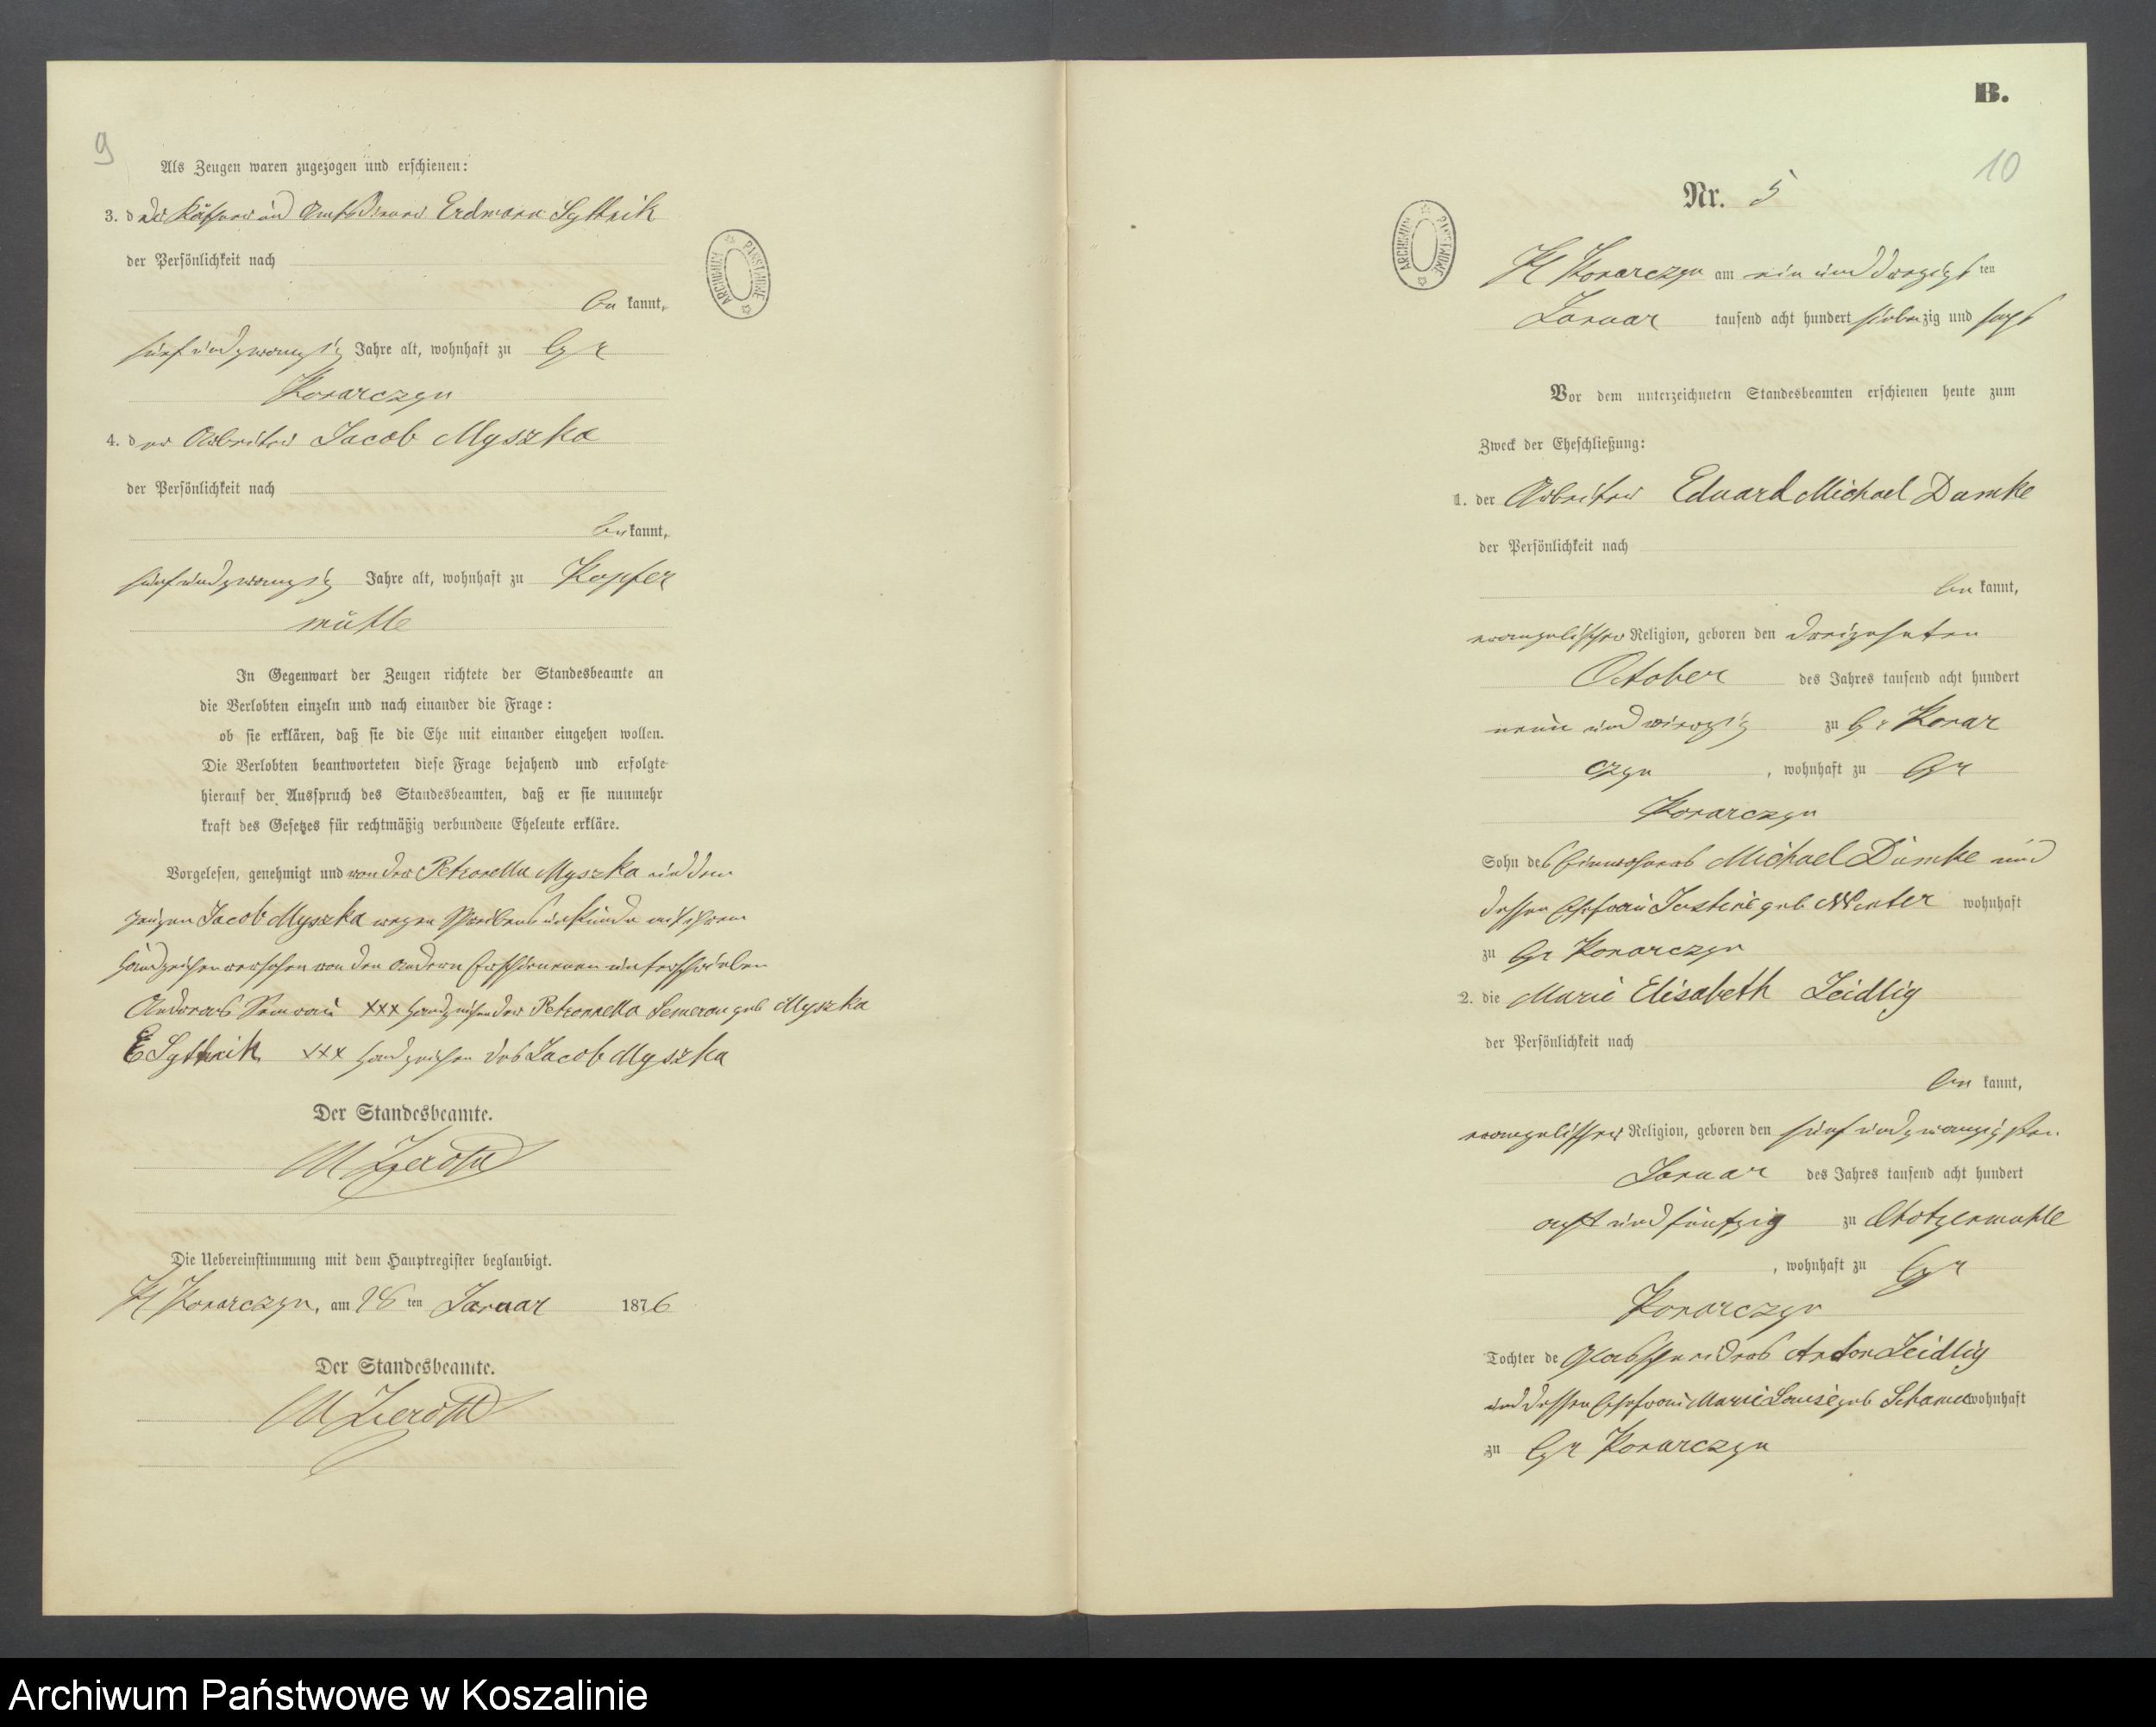 9
Als Zeugen waren zugezogen und erschienen:
3. der Käthner und Amtsdiener Erdmann Syttnik
der Persönlichkeit nach
be kannt,
fünf und zwanzig Jahre alt, wohnhaft zu Gr
Konarczyn
4. der Arbeiter Jacob Myszka
der Persönlichkeit nach
be kannt,
fünf und zwanzig Jahre alt, wohnhaft zu Kupfer
mühle
In Gegenwart der Zeugen richtete der Standesbeamte an
die Verlobten einzeln und nach einander die Frage:
ob sie erklären, daß sie die Ehe mit einander eingehen wollen.
Die Verlobten beantworteten diese Frage bejahend und erfolgte
hierauf der Ausspruch des Standesbeamten, daß er sie nunmehr
kraft des Gesetzes für rechtmäßig verbundene Eheleute erkläre.
Vorgelesen, genehmigt und von der Petronella Myszka und dem
Zeugen Jacob Myszka wegen Schreibensunkunde mit ihrem
Handzeichen versehen von den andern Erschienenen unterschrieben
Andreas Semrau xxx Handzeichen der Petronella Semerau geb Myszka
E Syttnik xxx Handzeichen des Jacob Myszka
Der Standesbeamte.
Die Uebereinstimmung mit dem Hauptregister beglaubigt.
Kl Konarczyn, am ten Januar 1876
Der Standesbeamte.
ARCHIWUM PAŃSTWOWE
B.
10
Nr. 5
ARCHIWUM PAŃSTWOWE
Kl Konarczyn am ein und dreizigs ten
Januar tausend acht hundert siebenzig und sechs
Vor dem unterzeichneten Standesbeamten erschienen heute zum
Zweck der Eheschließung:
1. der Arbeiter Eduard Michael Damke
der Persönlichkeit nach
be kannt,
evangelischer Religion, geboren den dreizehnten
October des Jahres tausend acht hundert
neun und vierzig zu Gr Konar
czyn, wohnhaft zu Gr
Konarczyn
Sohn des Einwohners Michael Damke und
dessen Ehefrau Justine geb Winter wohnhaft
zu Gr Konarczyn
2. die Marie Elisabeth Leidlig
der Persönlichkeit nach
be kannt,
evangelischer Religion, geboren den fünf und zwanzigsten
Januar des Jahres tausend acht hundert
acht und fünfzig zu
, wohnhaft zu Gr
Konarczyn
Tochter de Glasschneiders Anton Leidlig
und dessen Ehefrau Marie Louise geb wohnhaft
zu Gr Konarczyn
Archiwum Państwowe w Koszalinie